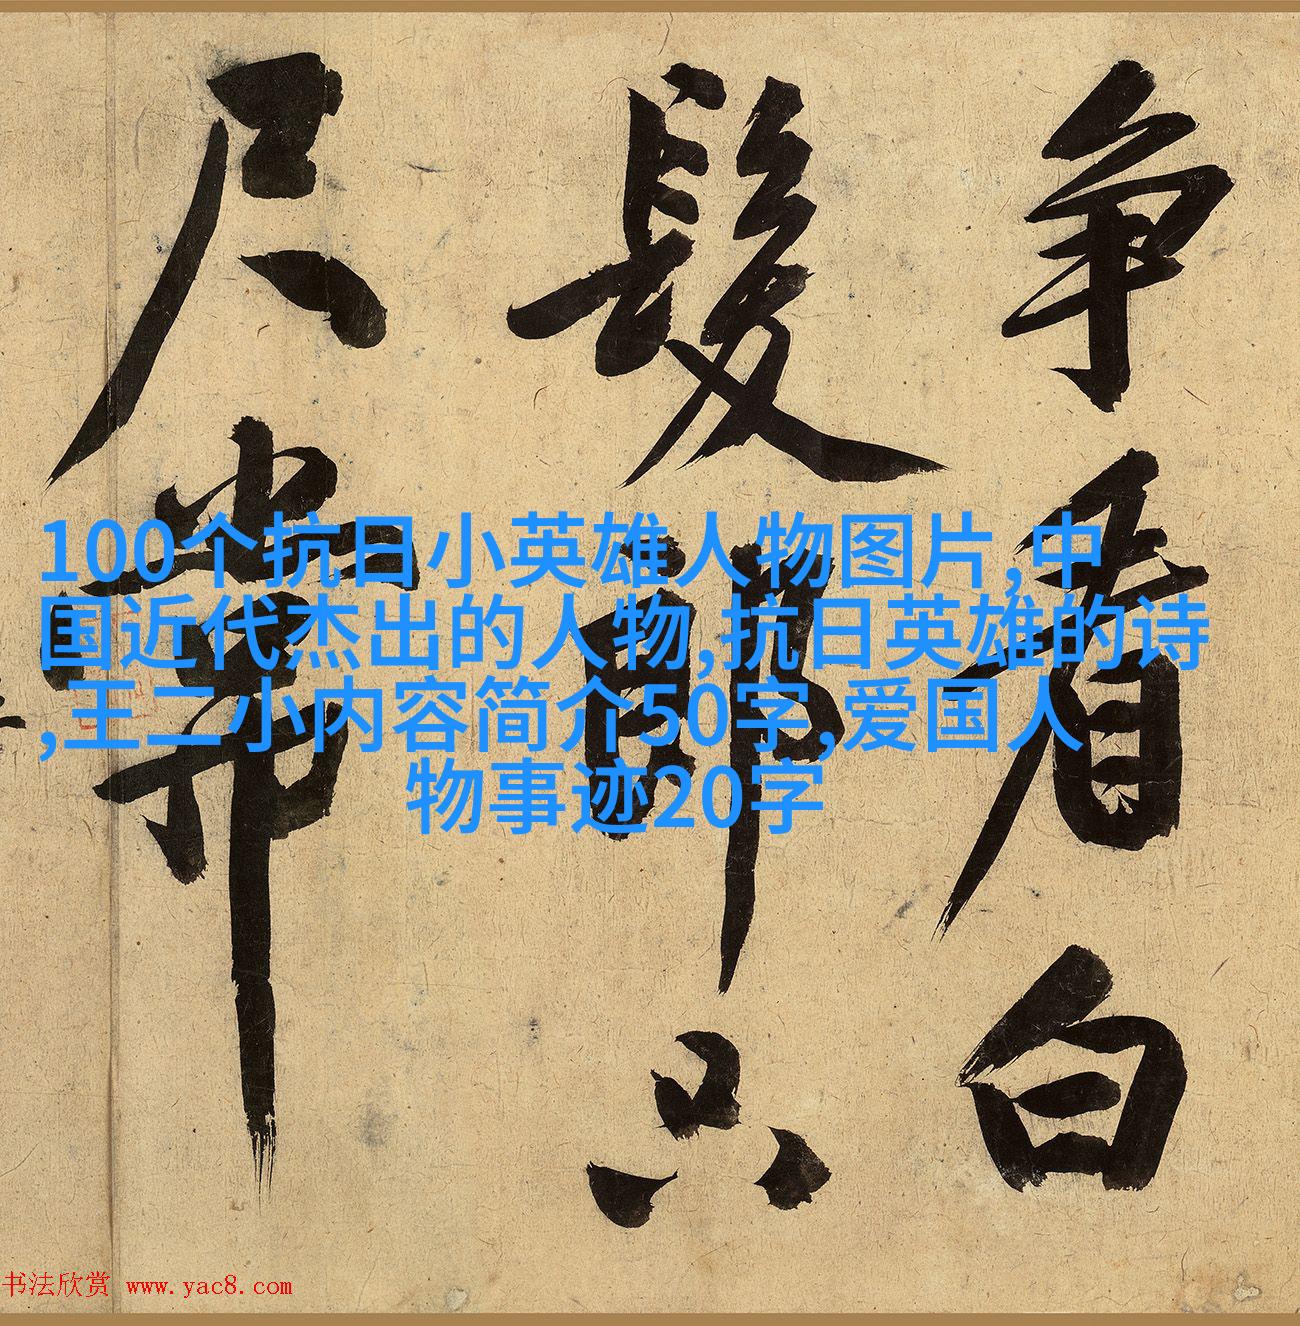 争看白
髮郎只
尺常
100个抗日小英雄人物图片,中
国近代杰出的人物,抗日英雄的诗
,王二小内容简介50字,爱国人
物事迹20字
书法欣赏 www.yac8.com